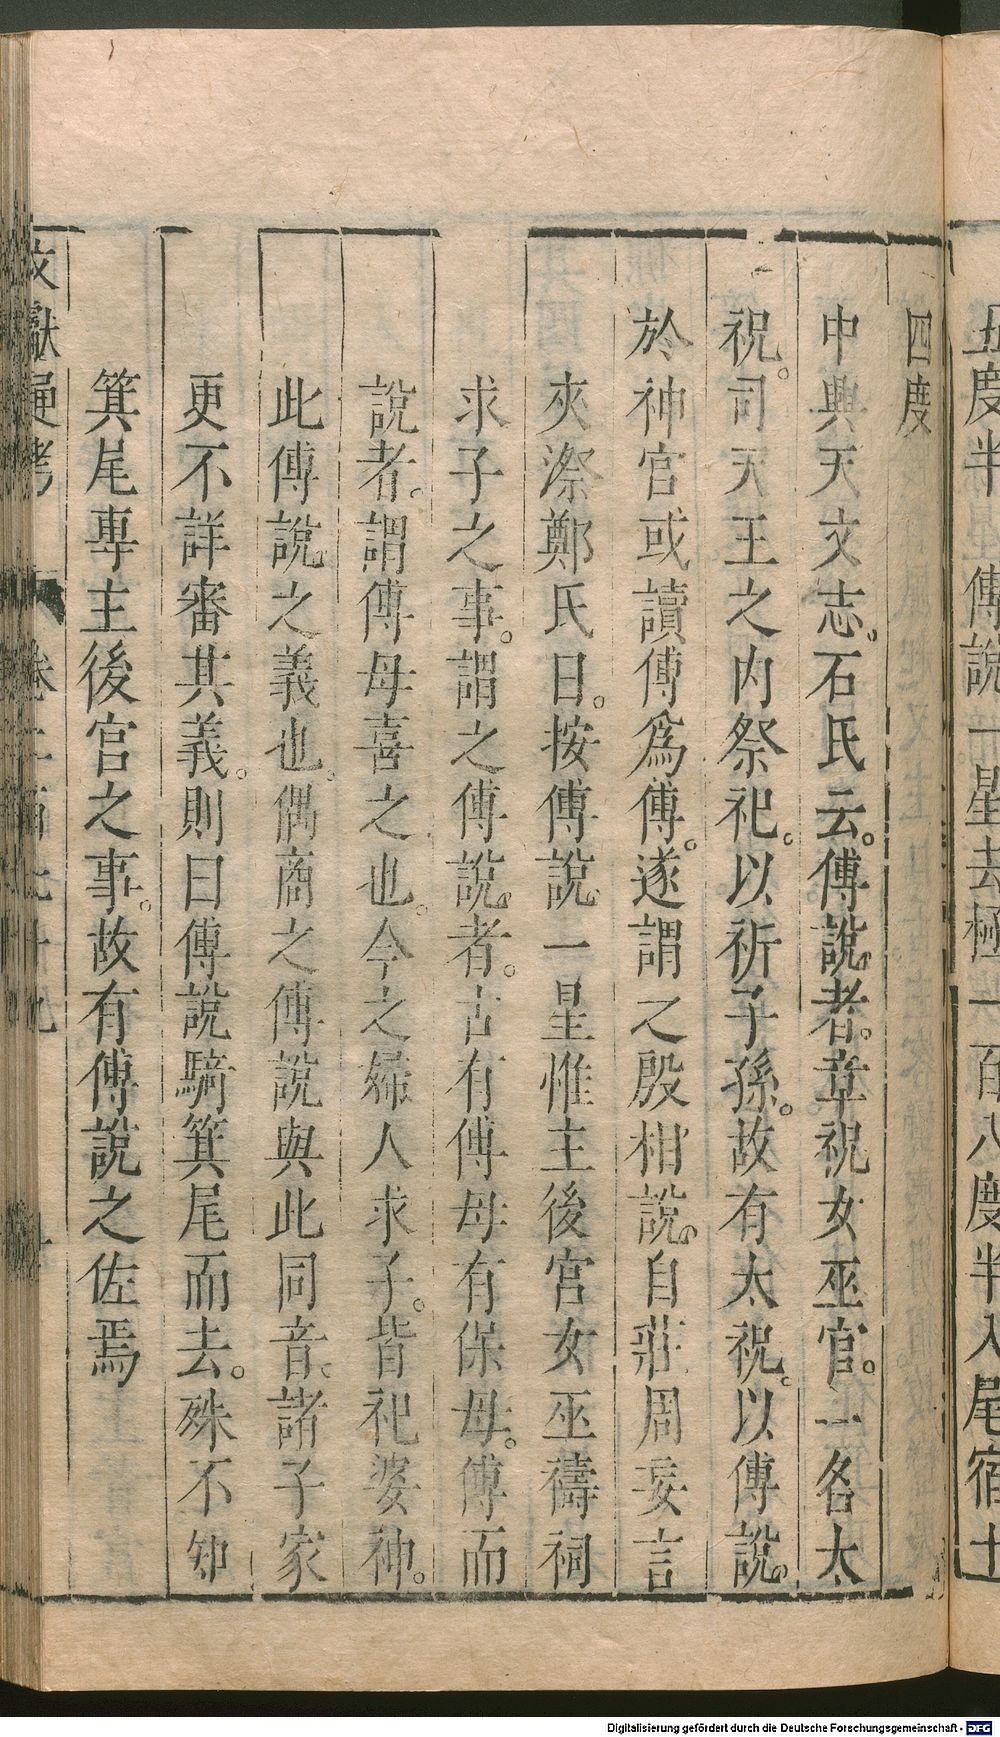 五度半傅說一星去極一百八度半入尾宿十
四度
中興天文志石氏云傅說者章祝女巫官一名太
祝司天王之內祭祀以祈子孫故有太祝以傅說
於神宮或讀傅爲傅遂謂之殷相說自莊周妄言
夾漈鄭氏曰按傅說一星惟主後宮女巫禱祠
求子之事謂之傅說者古有傅母有保母傅而
說者謂傅母喜之也今之婦人求子皆祀婆神
此傅說之義也偶商之傅說與此同音諸子家
更不詳審其義則曰傅說騎箕尾而去殊不知
箕尾專主後宮之事故有傅說之佐焉
文獻通考 卷二百七十九
Digitalisierung gefördert durch die Deutsche Forschungsgemeinschaft - DFG